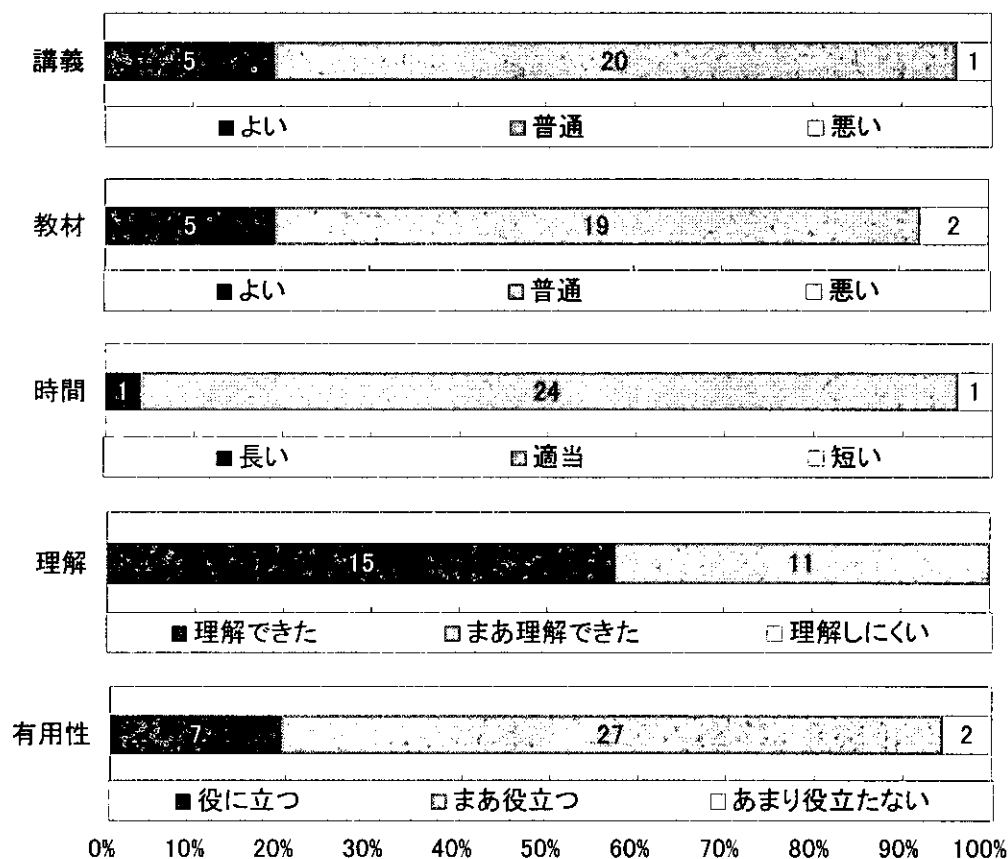 講義 5 20 1
■よい ■普通 □悪い
教材 5 19 2
■よい ■普通 □悪い
時間 1 24 1
■長い ■適当 □短い
理解 15 11
■理解できた ■まあ理解できた □理解しにくい
有用性 7 27 2
■役に立つ ■まあ役立つ □あまり役立たない
0% 10% 20% 30% 40% 50% 60% 70% 80% 90% 100%